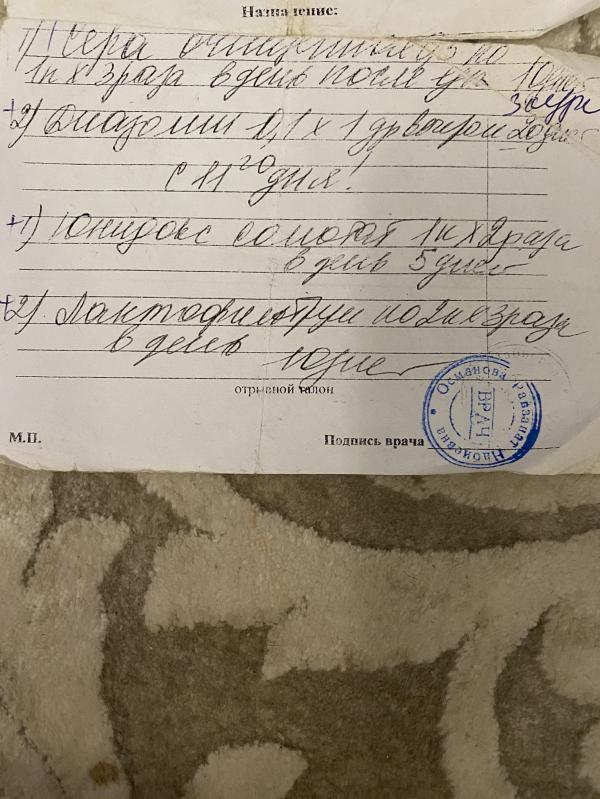 Назначение:
1) Сера очищенная по
1п х 3 раза в день после еды 10дней
+2) Диазолин 0,1 х 1 др вечером 20дней
с 11го дня!
+1) Юнидокс солютаб 1п х 2раза
в день 5дней
+2) Лактофильтрум по 2п х 3раза
в день 10дней
отрывной талон
М.П.
Подпись врача
Османова
ВРАЧ